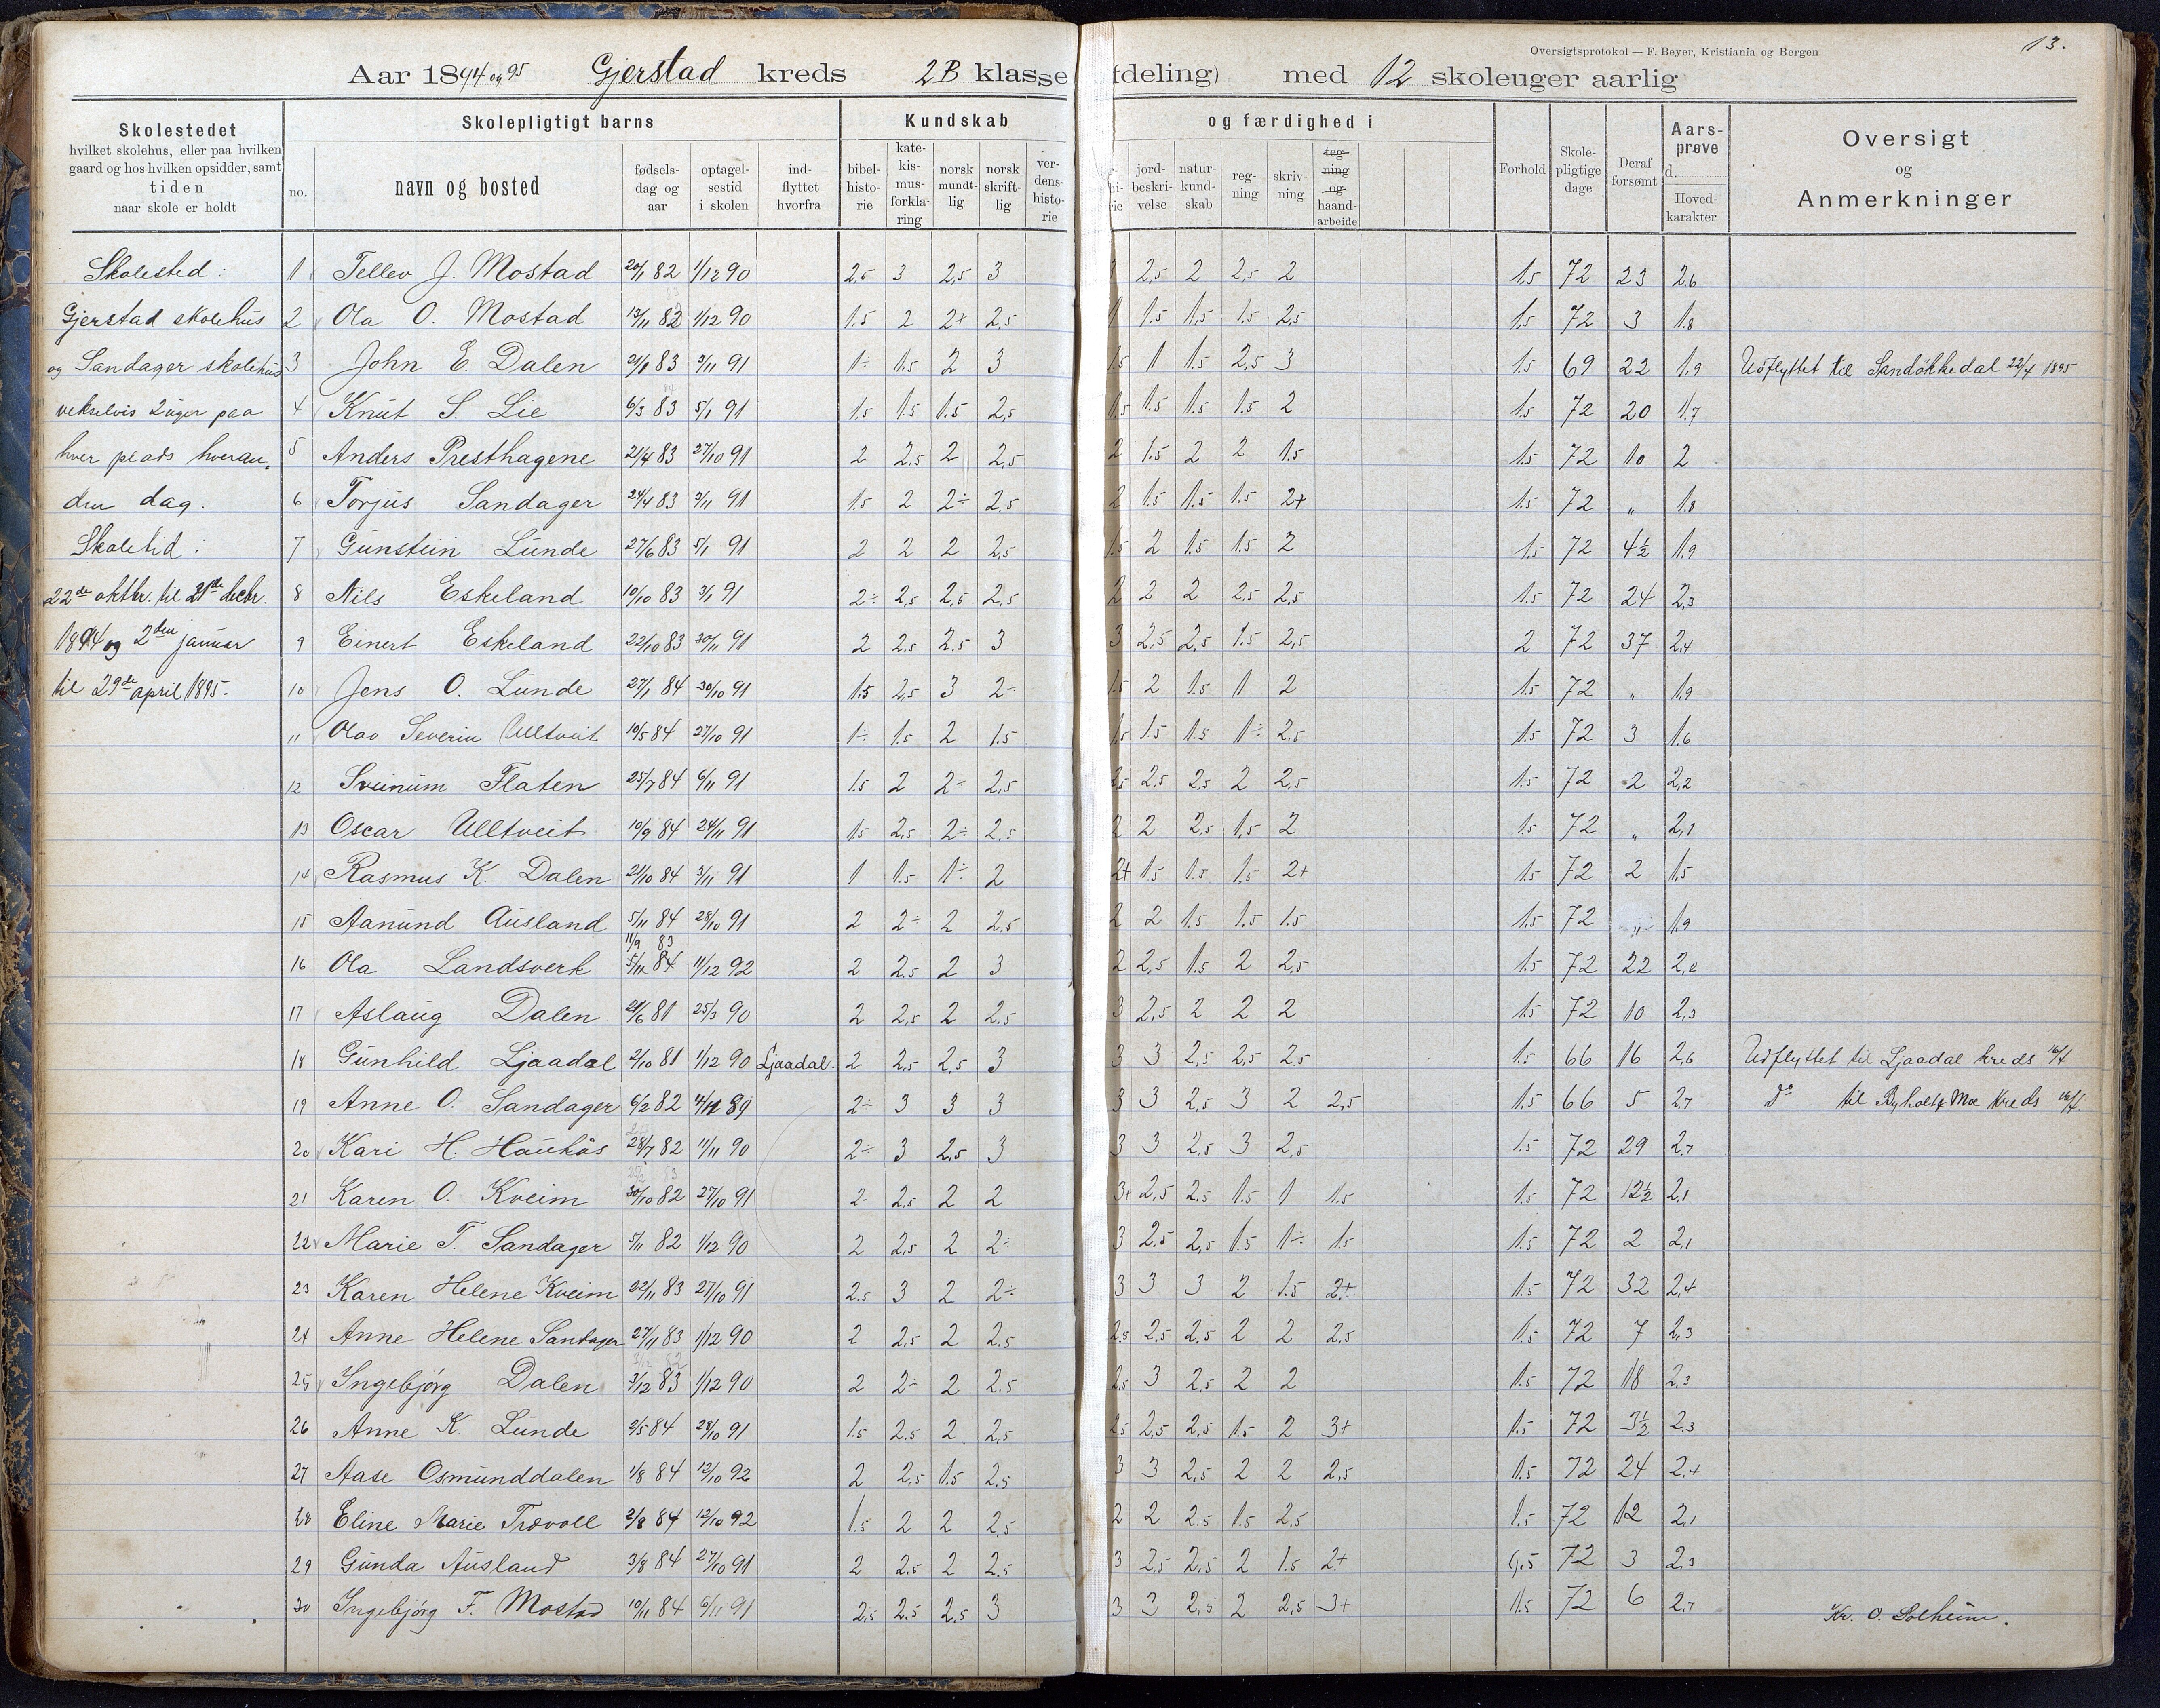 Oversigtsprotokol — F. Beyer, Kristiania og Bergen
13.
Aar 1894 og 95 Gjerstad kreds 2B klasse (deling) med 12 skoleuger aarlig
Skolestedet
hvilket skolehus, eller paa hvilken
gaard og hos hvilken opsidder, samt
tiden
naar skole er holdt
Skolepligtigt barns
no. navn og bosted
fødsels-
dag og
aar
optagel-
sestid
i skolen
ind-
flyttet
hvorfra
Kundskab og færdighed i
bibel-
histo-
rie
kate-
kis-
mus-
forkla-
ring
norsk
mundt-
lig
norsk
skrift-
lig
ver-
dens-
histo-
rie
jord-
beskri-
velse
natur-
kund-
skab
reg-
ning
skriv-
ning
teg-
ning
og
haand-
arbeide
Forhold
Skole-
pligtige
dage
Deraf
forsømt
Aars-
prøve
d.
Hoved-
karakter
Oversigt
og
Anmerkninger
Skolested:
Gjerstad skolehus
og Sandager skolehus
vekselvis 2 uger paa
hver plads hveran-
den dag.
Skoletid:
22de oktbr. til 21de decbr.
1894 og 2den januar
til 29de april 1895.
1 Tellev J. Mostad 20/1 82 1/12 90 2,5 3 2,5 3 2,5 2 2,5 2 1,5 72 23 2,6
2 Ola O. Mostad 13/11 82 1/12 90 1,5 2 2+ 2,5 1,5 1,5 1,5 2,5 1,5 72 3 1,8
3 John E. Dalen 21/1 83 3/11 91 1÷ 1,5 2 3 1,5 1 1,5 2,5 3 1,5 69 22 1,9 Udflyttet til Sandökkedal 22/4 1895
4 Knut S. Lie 6/3 83 5/1 91 1,5 1,5 1,5 2,5 1,5 1,5 1,5 1,5 2 1,5 72 20 1,7
5 Anders Presthagene 21/4 83 27/10 91 2 2,5 2 2,5 2 1,5 2 2 1,5 1,5 72 10 2
6 Torjus Sandager 24/4 83 3/11 91 1,5 2 2÷ 2,5 2 1,5 1,5 1,5 2+ 1,5 72 „ 1,8
7 Gunstein Lunde 27/6 83 5/1 91 2 2 2 2,5 1,5 2 1,5 1,5 2 1,5 72 4½ 1,9
8 Nils Eskeland 10/10 83 3/1 91 2÷ 2,5 2,5 2,5 2 2 2 2,5 2,5 1,5 72 24 2,3
9 Einert Eskeland 22/10 83 30/11 91 2 2,5 2,5 3 3 2,5 2,5 1,5 2,5 2 72 37 2,4
10 Jens O. Lunde 27/1 84 30/10 91 1,5 2,5 3 2÷ 1,5 2 1,5 1 2 1,5 72 „ 1,9
11 Olav Severin Ulltveit 10/5 84 27/10 91 1÷ 1,5 2 1,5 1,5 1,5 1,5 1÷ 2,5 1,5 72 3 1,6
12 Sveinum Flaten 25/7 84 6/11 91 1,5 2 2÷ 2,5 2,5 2,5 2,5 2 2,5 1,5 72 2 2,2
13 Oscar Ulltveit 10/9 84 24/11 91 1,5 2,5 2÷ 2,5 2 2 2,5 1,5 2 1,5 72 „ 2,1
14 Rasmus K. Dalen 21/10 84 3/11 91 1 1,5 1÷ 2 2+ 1,5 1,5 1,5 2+ 1,5 72 2 1,5
15 Aanund Ausland 5/11 84 28/10 91 2 2÷ 2 2,5 2 2 1,5 1,5 1,5 1,5 72 „ 1,9
11/9 83
16 Ola Landsverk 5/11 84 11/12 92 2 2,5 2 3 2 2,5 1,5 2 2,5 1,5 72 22 2,2
17 Aslaug Dalen 21/6 81 25/3 90 2 2,5 2 2,5 3 2,5 2 2 2 1,5 72 10 2,3
18 Gunhild Ljaadal 2/10 81 1/12 90 Ljaadal. 2 2,5 2,5 3 3 3 2,5 2,5 2,5 1,5 66 16 2,6 Udflyttet til Ljaadal kreds 16/4
19 Anne O. Sandager 6/2 82 4/11 89 2÷ 3 3 3 3 3 2,5 3 2 2,5 1,5 66 5 2,7 Do til Moe kreds 16/4
20 Kari H. Haukås 28/7 82 11/11 90 2÷ 3 2,5 3 3 3 2,5 3 2,5 1,5 72 29 2,7
21 Karen O. Kveim 30/10 82 27/10 91 2÷ 2,5 2 2 3+ 2,5 2,5 1,5 1 1,5 1,5 72 12½ 2,1
22 Marie T. Sandager 5/11 82 1/12 90 2 2,5 2 2÷ 3 2,5 2,5 1,5 1÷ 1,5 1,5 72 2 2,1
23 Karen Helene Kveim 22/11 83 27/10 91 2,5 3 2 2÷ 3 3 3 2 1,5 2+ 1,5 72 32 2,4
24 Anne Helene Sandager 27/11 83 1/12 90 2 2,5 2 2,5 2,5 2,5 2,5 2 2 2,5 1,5 72 7 2,3
25 Ingebjörg Dalen 3/12 83 1/12 90 2 2÷ 2 2,5 2,5 3 2,5 2 2 1,5 72 18 2,3
26 Anne K. Lunde 2/5 84 28/10 91 1,5 2,5 2 2,5 2,5 2,5 2,5 1,5 2 3+ 1,5 72 3½ 2,3
27 Aase Osmunddalen 1/8 84 12/10 92 2 2,5 1,5 2,5 3 3 2,5 2 2 2,5 1,5 72 24 2,4
28 Eline Marie Trovoll 2/8 84 12/10 92 1,5 2 2 2,5 2 2 2,5 1,5 2,5 1,5 72 12 2,1
29 Gunda Ausland 3/8 84 27/10 91 2 2,5 2 2,5 3 2,5 2,5 2 1,5 2+ 1,5 72 3 2,3
30 Ingebjörg F. Mostad 10/11 84 6/11 91 2,5 2,5 2,5 3 3 3 2,5 2 2,5 3+ 1,5 72 6 2,7
Kr. O. Solheim.